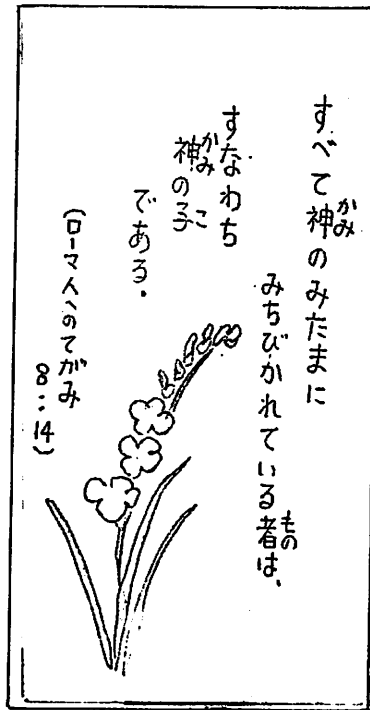 すべて神のみたまに
みちびかれている者は、
すなわち
神の子
である.
(ローマ人へのてがみ
8:14)